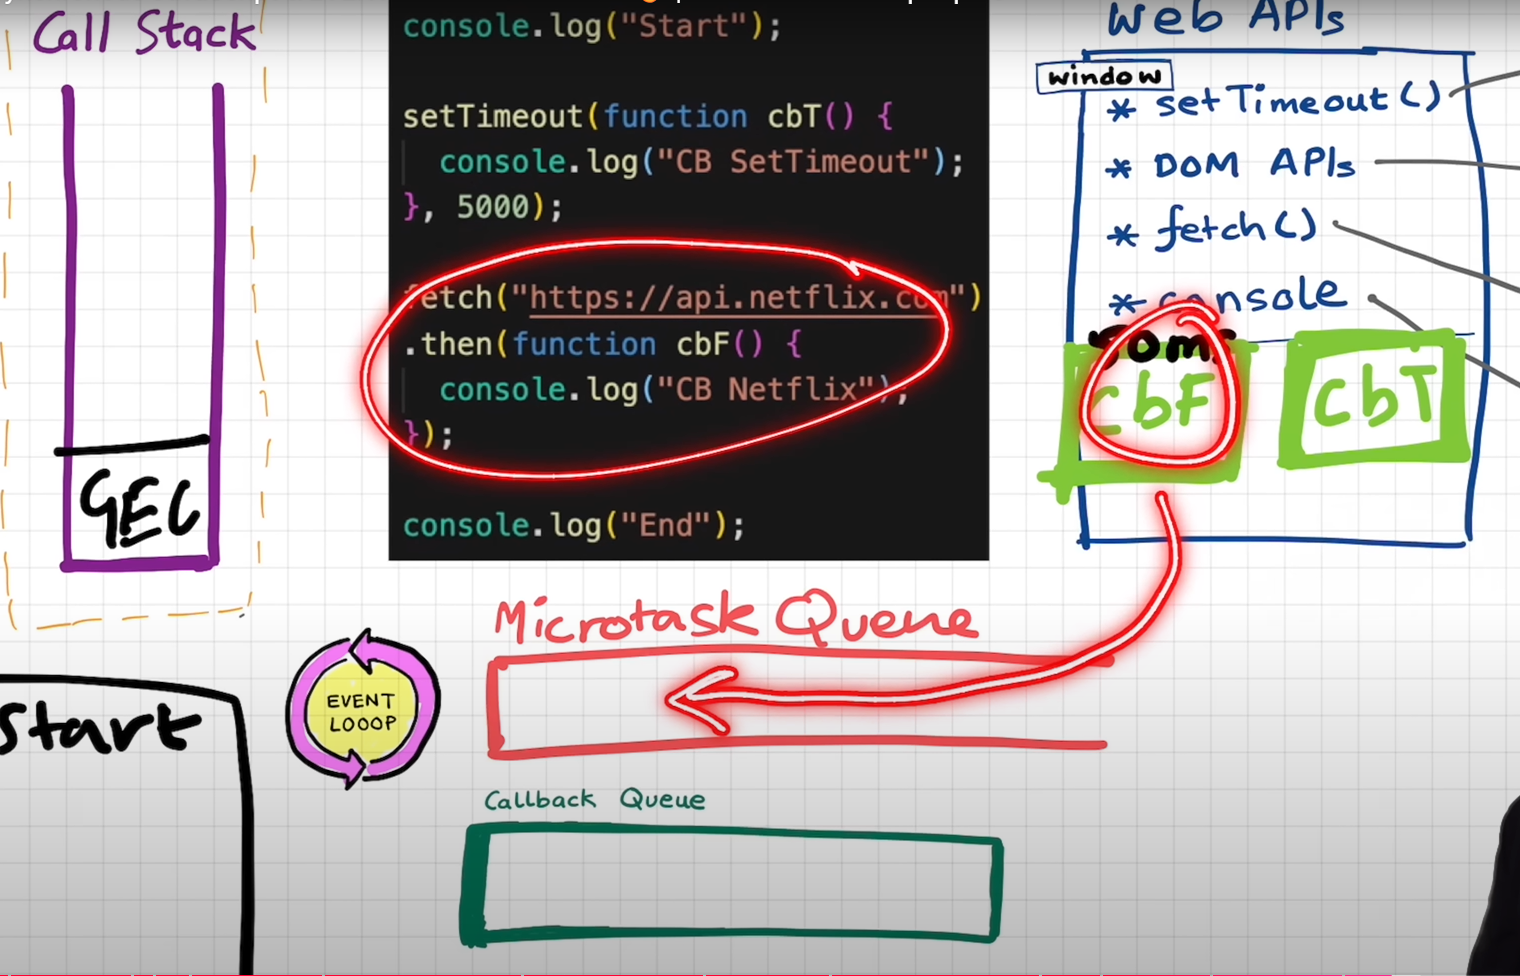 Call Stack
GEC
console.log("Start");
setTimeout(function cbT() {
console.log("CB SetTimeout");
}, 5000);
fetch("https://api.netflix.com")
.then(function cbF() {
console.log("CB Netflix");
});
console.log("End");
Web APIs
window
* setTimeout()
* DOM APIs
* fetch()
* console
cbF
cbT
Microtask Queue
EVENT
LOOOP
Start
Callback Queue